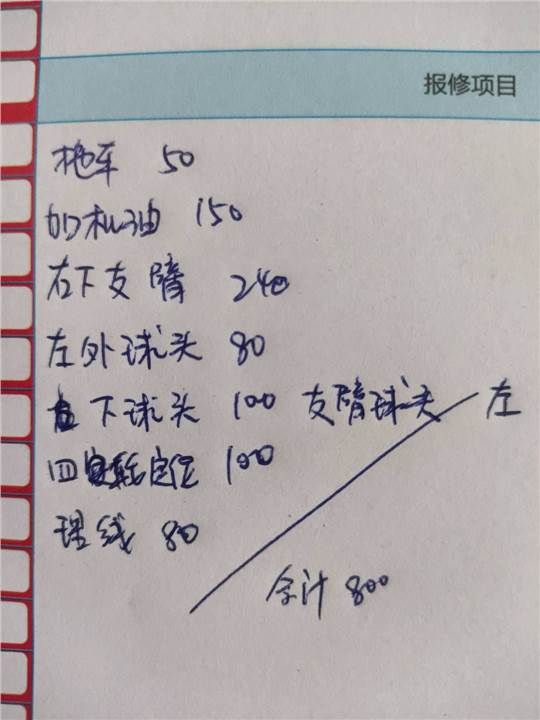 报修项目
拖车 50
加机油 150
右下支臂 240
左外球头 80
下球头 100 支臂球头 左
四轮定位 100
理线 80
合计 800